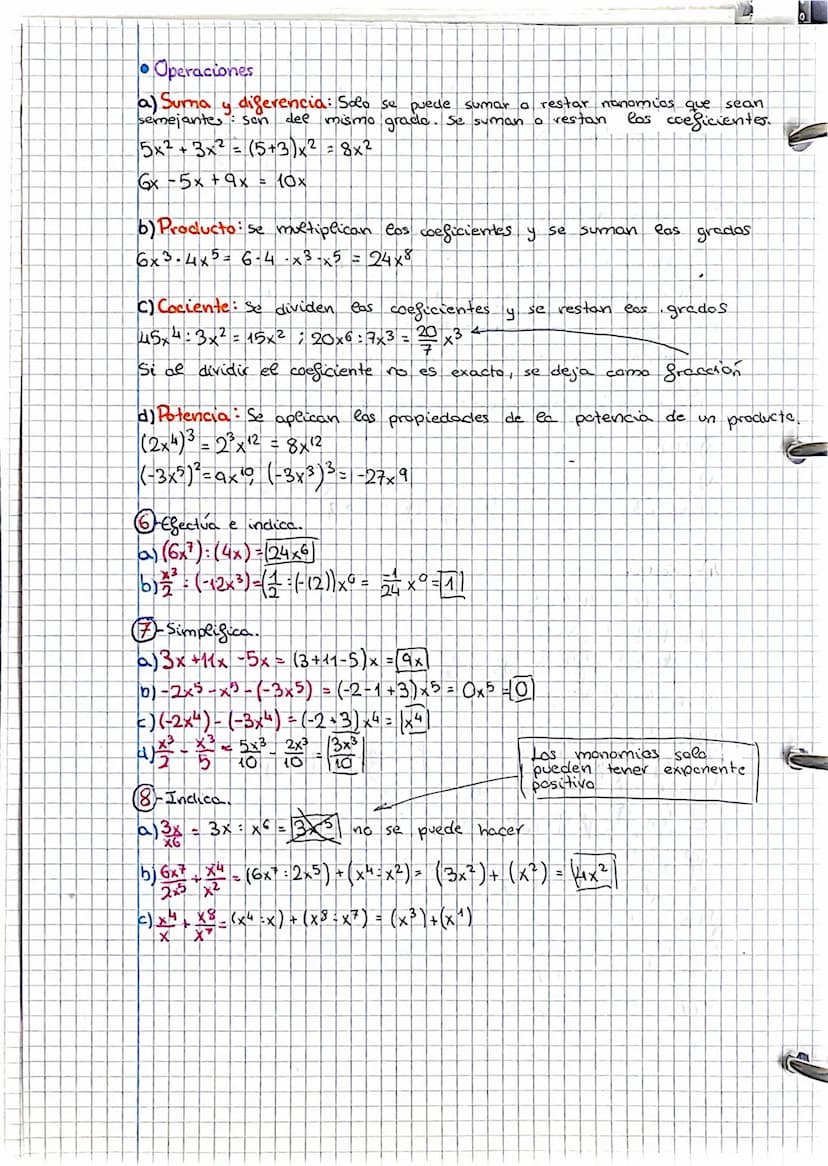 • Operaciones
a) Suma y diferencia: Solo se puede sumar o restar monomios que sean
semejantes: son del mismo grado. Se suman o restan los coeficientes.
5x² + 3x² = (5+3)x² = 8x²
6x - 5x + 9x = 10x
b) Producto: se multiplican los coeficientes y se suman los grados
6x³ · 4x⁵ = 6 · 4 · x³ · x⁵ = 24x⁸
c) Cociente: Se dividen los coeficientes y se restan los grados
45x⁴ : 3x² = 15x² ; 20x⁶ : 7x³ = 20/7 x³
Si al dividir el coeficiente no es exacto, se deja como fracción
d) Potencia: Se aplican las propiedades de la potencia de un producto.
(2x⁴)³ = 2³x¹² = 8x¹²
(-3x⁵)² = 9x¹⁰; (-3x³)³ = -27x⁹
⑥-Efectúa e indica.
a) (6x⁷) : (4x) = 24x⁶
b) x³/2 : (-12x³) = (1/2 : (-12))x⁰ = -1/24 x⁰ = 1
⑦-Simplifica.
a) 3x + 11x - 5x = (3+11-5)x = 9x
b) -2x⁵ - x⁵ - (-3x⁵) = (-2-1+3)x⁵ = 0x⁵ = 0
c) (-2x⁴) - (-3x⁴) = (-2+3)x⁴ = x⁴
d) x³/2 - x³/5 = 5x³/10 - 2x³/10 = 3x³/10
Los monomios solo
pueden tener exponente
positivo
⑧-Indica.
a) 3x/x⁶ = 3x : x⁶ = 3x⁻⁵ no se puede hacer
b) 6x⁷/2x⁵ + x⁴/x² = (6x⁷ : 2x⁵) + (x⁴ : x²) = (3x²) + (x²) = 4x²
c) x⁴/x + x⁸/x⁷ = (x⁴ : x) + (x⁸ : x⁷) = (x³) + (x¹)